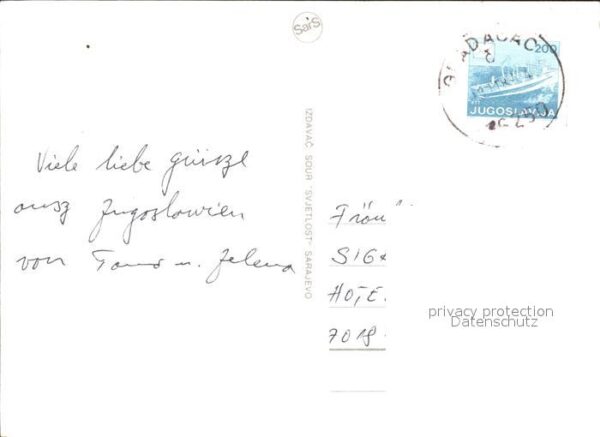 SaiS
GRADAČAC
200
JUGOSLAVIJA
Viele liebe grüsze
ausz Jugoslawien
von Tomo u. Jelena
IZDAVAČ SOUR "SVJETLOST" SARAJEVO
Fräu
SIG
HOTE
7018
privacy protection
Datenschutz